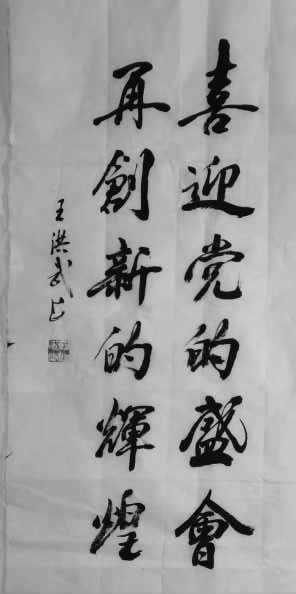 喜迎党的盛會
再創新的輝煌
王洪武